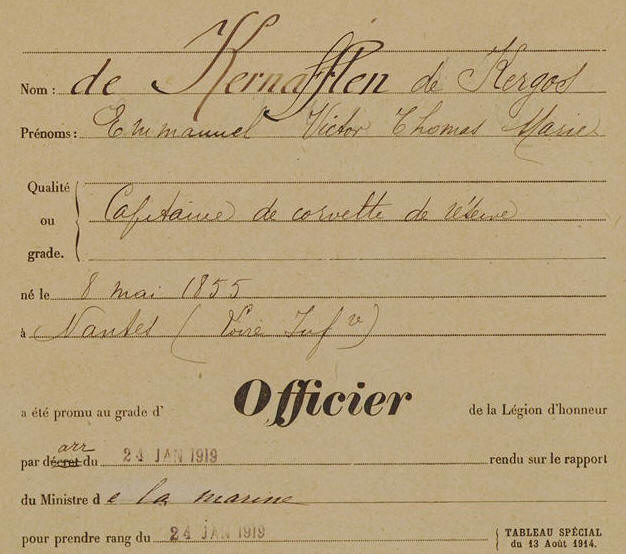 Nom : de Kernafflen de Kergos
Prénoms : Emmanuel Victor Thomas Marie
Qualité
ou
grade.
Capitaine de corvette de réserve
né le 8 mai 1855
à Nantes (Loire Infre)
a été promu au grade d' Officier de la Légion d'honneur
arr
par décret du 24 JAN 1919 rendu sur le rapport
du Ministre de la marine
pour prendre rang du 24 JAN 1919
TABLEAU SPÉCIAL
du 13 Août 1914.